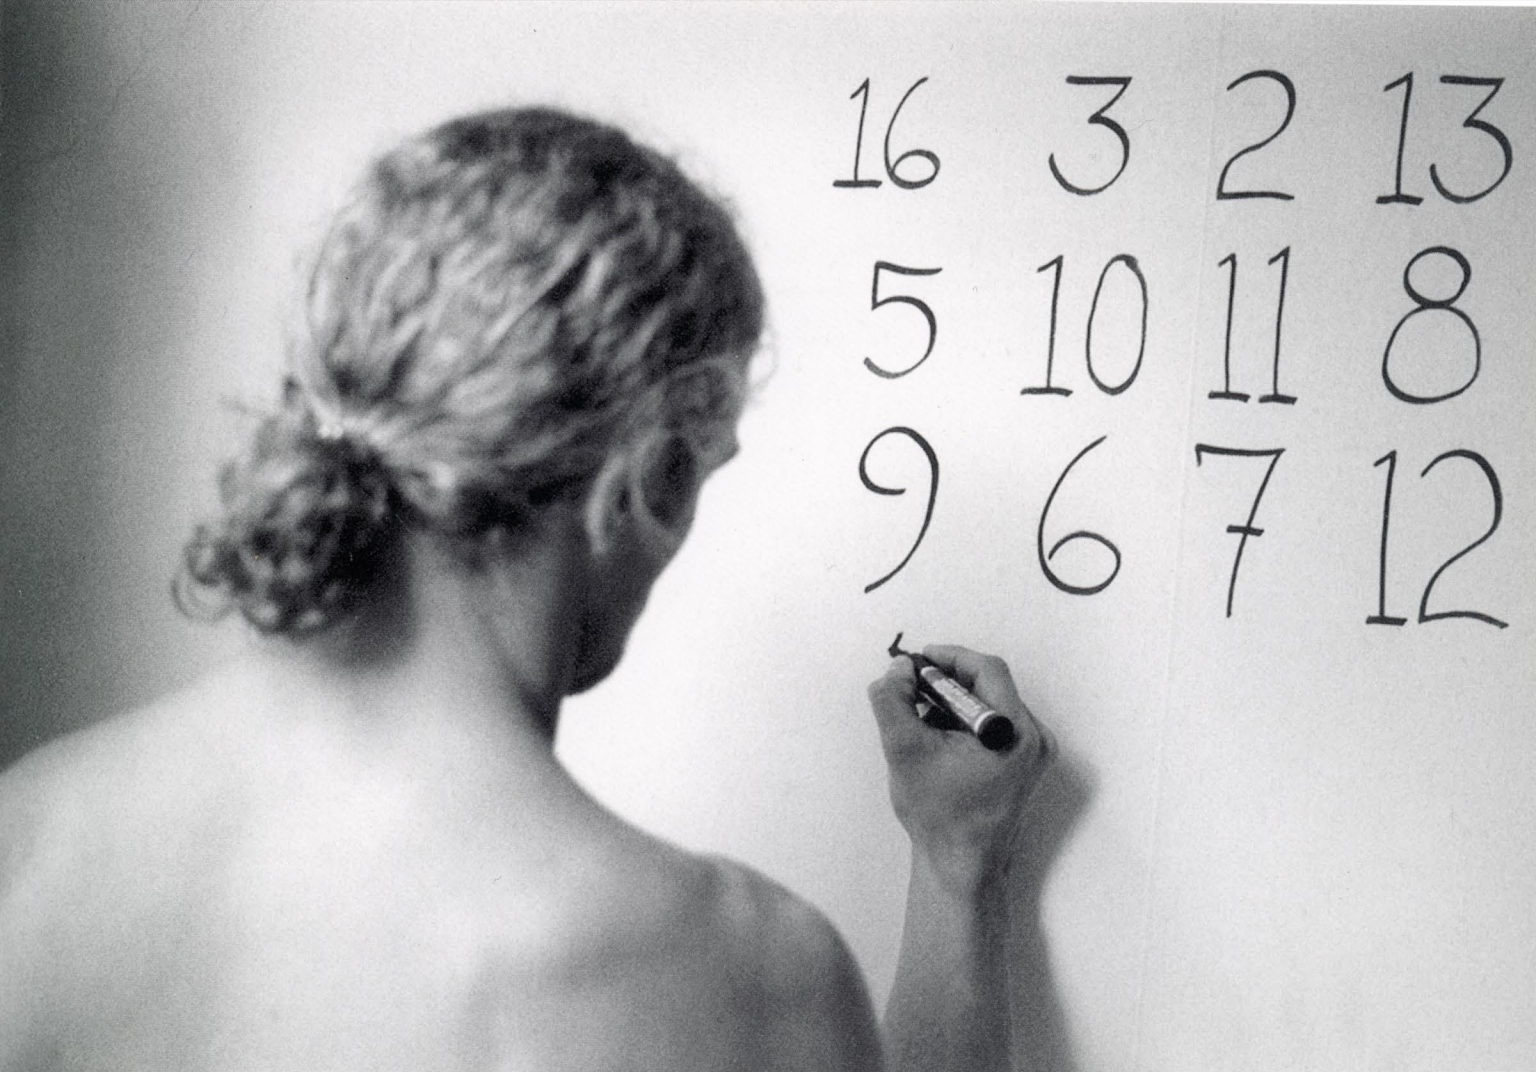 16 3 2 13
5 10 11 8
9 6 7 12